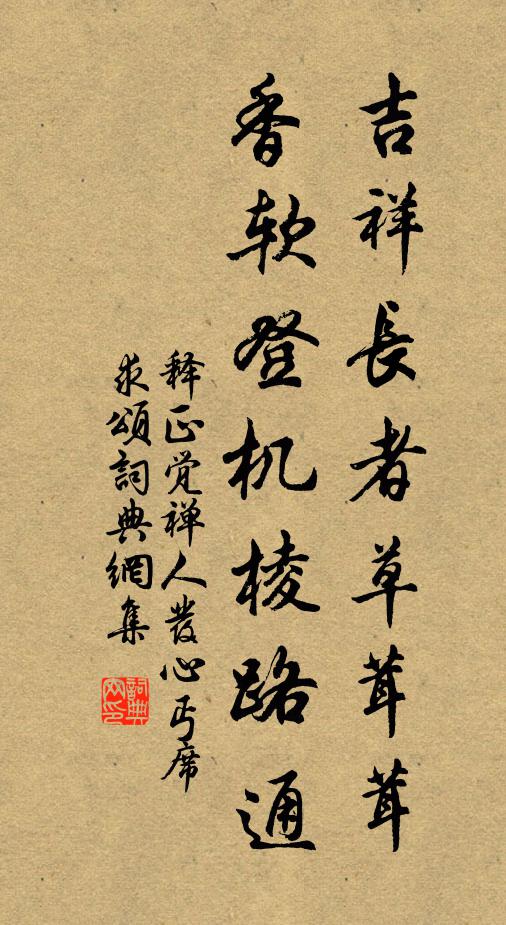 吉祥長者草茸茸
香软登机棱路通
释正觉禅人發心丐席
求頌詞典網集
詞典
网印